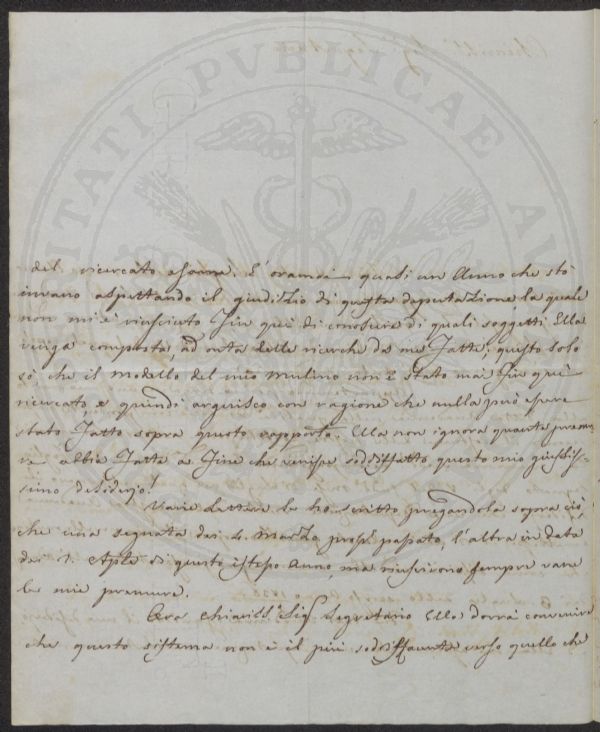 PVBLICAE
del ricercato esame. È oramai quasi un Anno che stò
invano aspettando il giudizio di questa deputazione la quale
non mi è riuscito fin quì di conoscere di quali soggetti Ella
venga composta, ad onta delle ricerche da me fatte; questo solo
sò che il modello del mio mulino non è stato mai fin quì
ricercato, e quindi arguisco con ragione che nulla può essere
stato fatto sopra questo rapporto. Ella non ignora quante premu-
re abbia fatte a fine che venisse soddisfatto questo mio giustis-
simo desiderio!
Varie Lettere le ho scritto pregandola sopra ciò,
che una segnata dei 4. Marzo pross. passato, l'altra in data
dei 1. Aple di questo istesso Anno, ma riuscirono sempre vane
le mie premure.
Ora Chiariss. Sig. Segretario Ella dovrà convenire
che questo sistema non è il più soddisfacente verso quello che